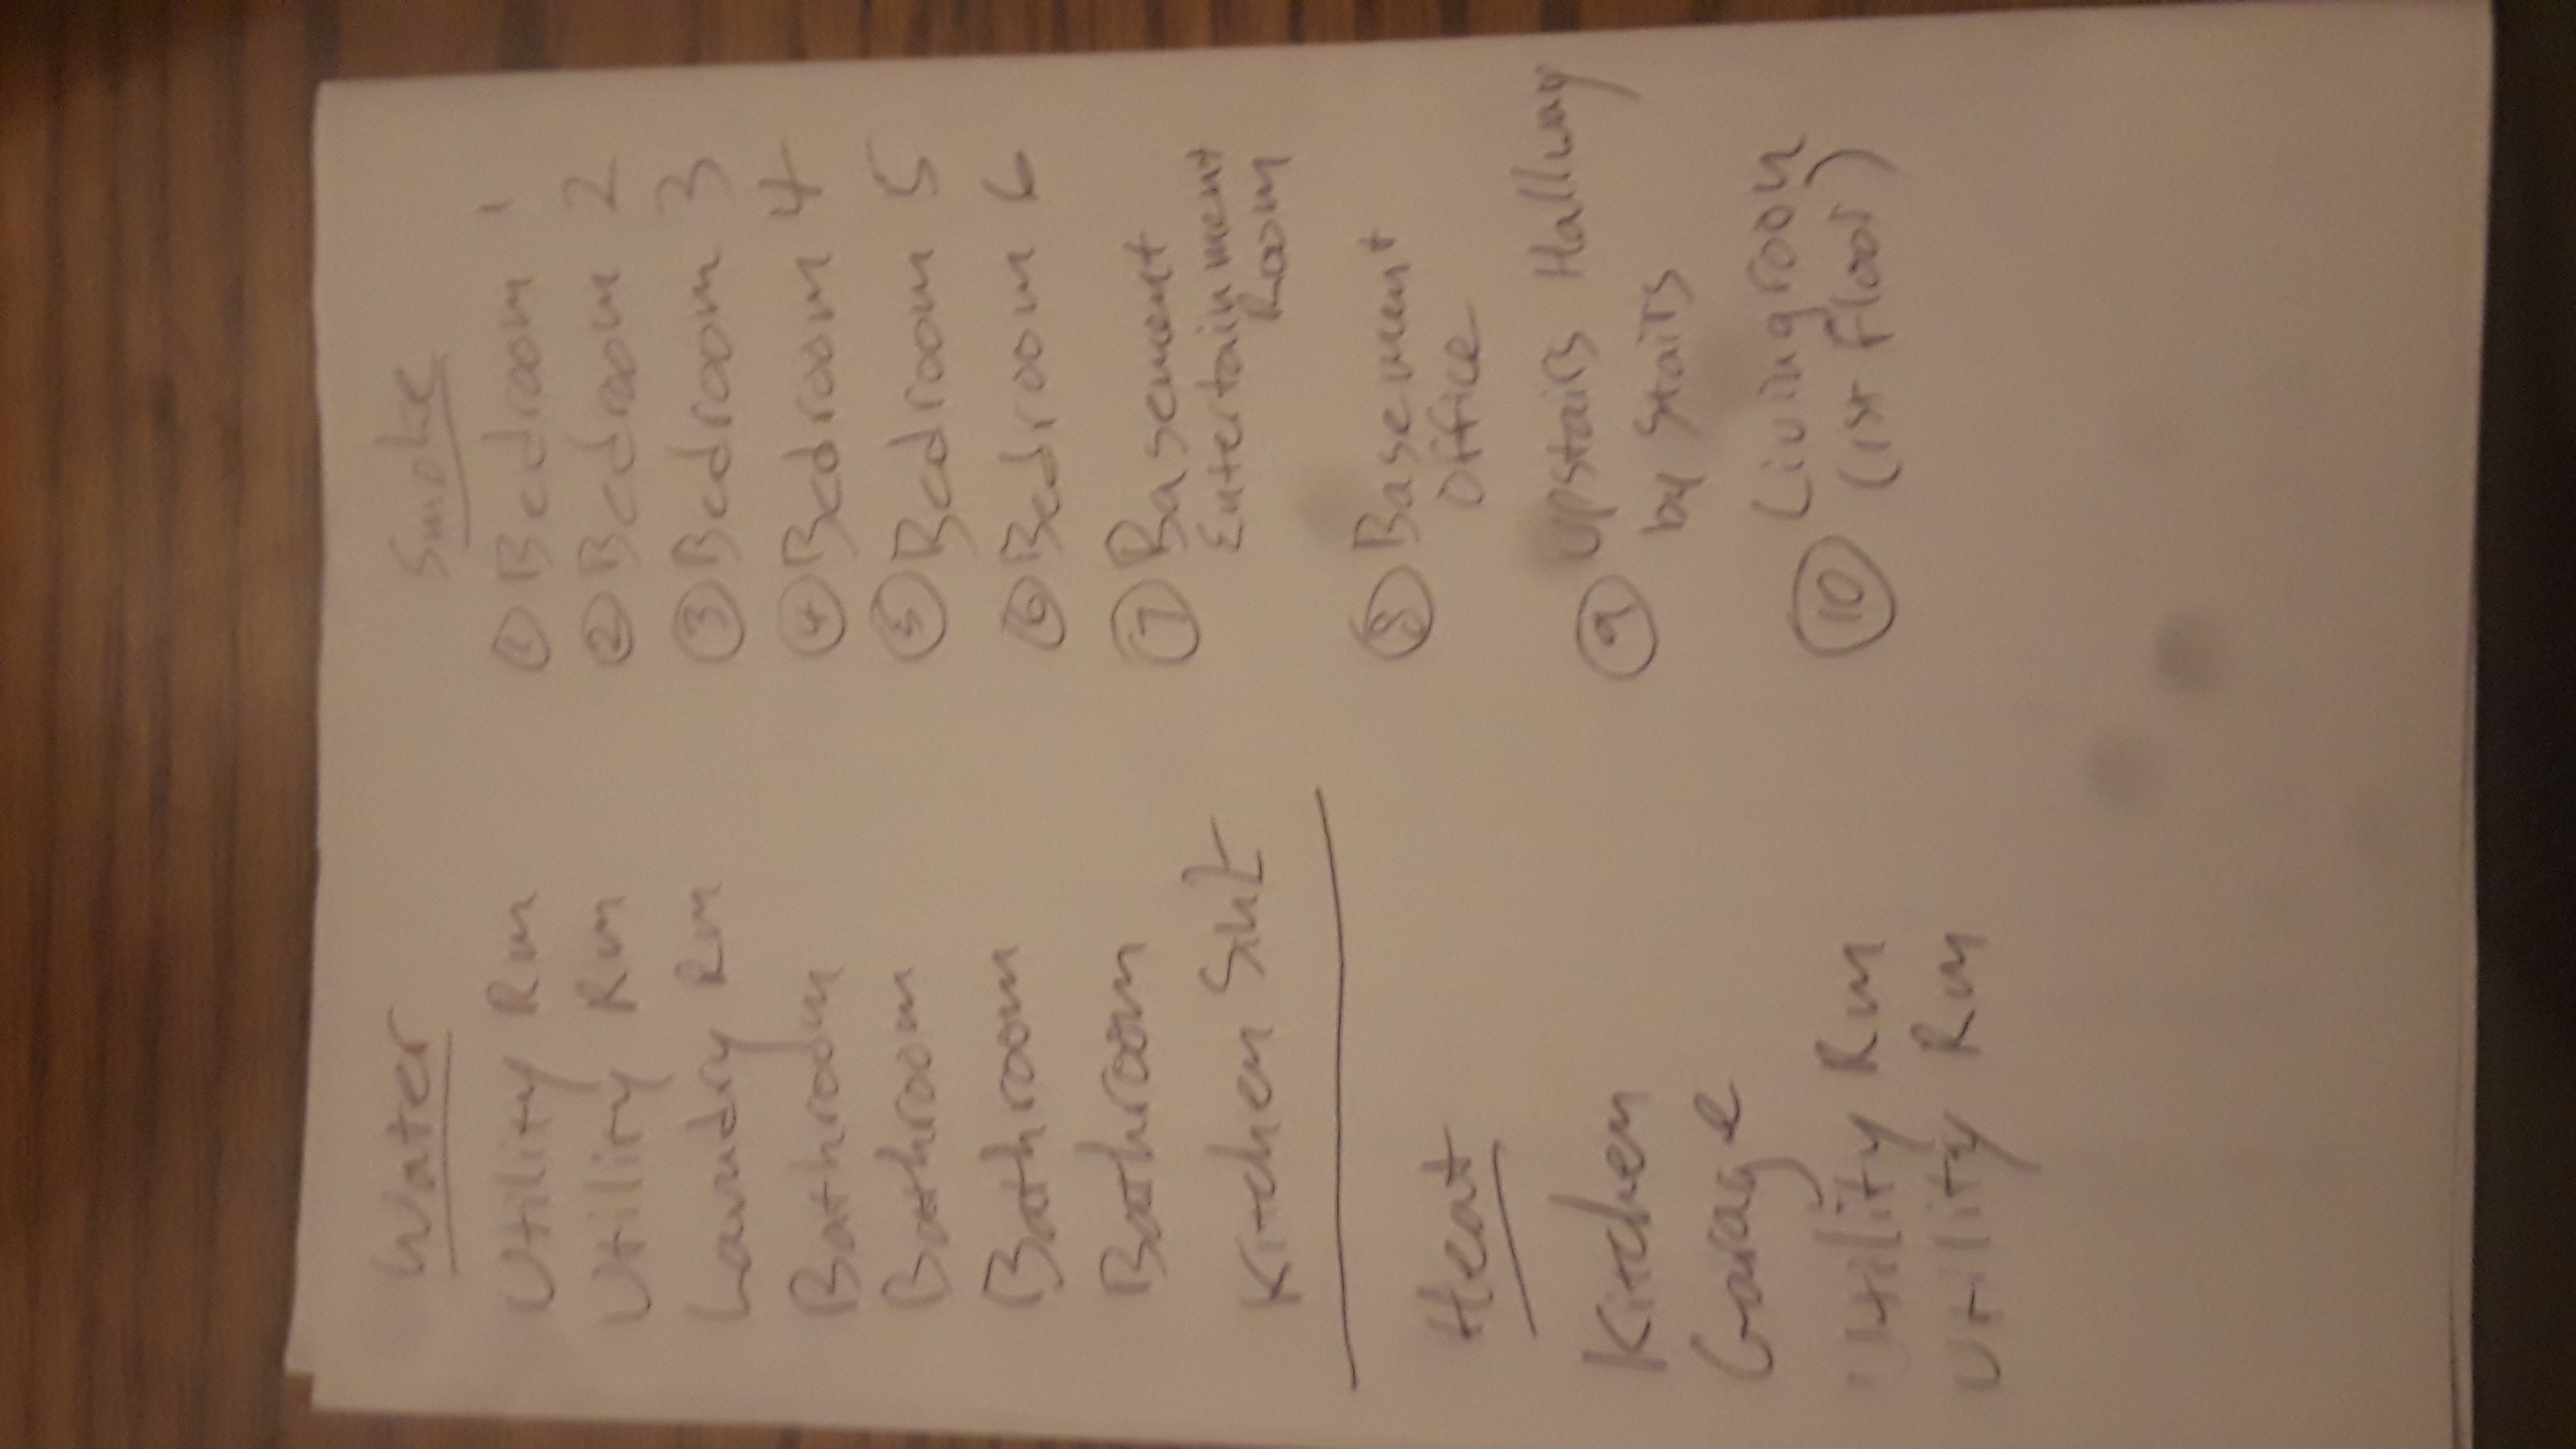 Water
Utility Rm
Utility Rm
Laundry Rm
Bathroom
Bathroom
Bathroom
Bathroom
Kitchen Sink
Heat
Kitchen
Garage
Utility Rm
Utility Rm
Smoke
① Bedroom 1
② Bedroom 2
③ Bedroom 3
④ Bedroom 4
⑤ Bedroom 5
⑥ Bedroom 6
⑦ Basement
Entertainment
Room
⑧ Basement
Office
⑨ Upstairs Hallway
by stairs
⑩ Livingroom
(1st Floor)